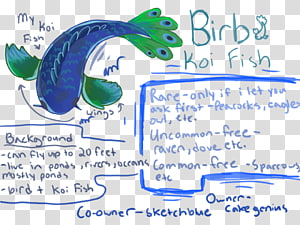 My Koi
Fish
Birb
Koi Fish
wings
Rare - only if i let you
ask first - Peacocks, eagles
owl, etc.
Uncommon - free -
raven, dove etc.
Common - free - Sparrows
etc
Background
- can fly up to 20 feet
- live in ponds, rivers, oceans
mostly ponds
- bird + Koi Fish
Owner-
cakegenius
Co-owner - sketchblue